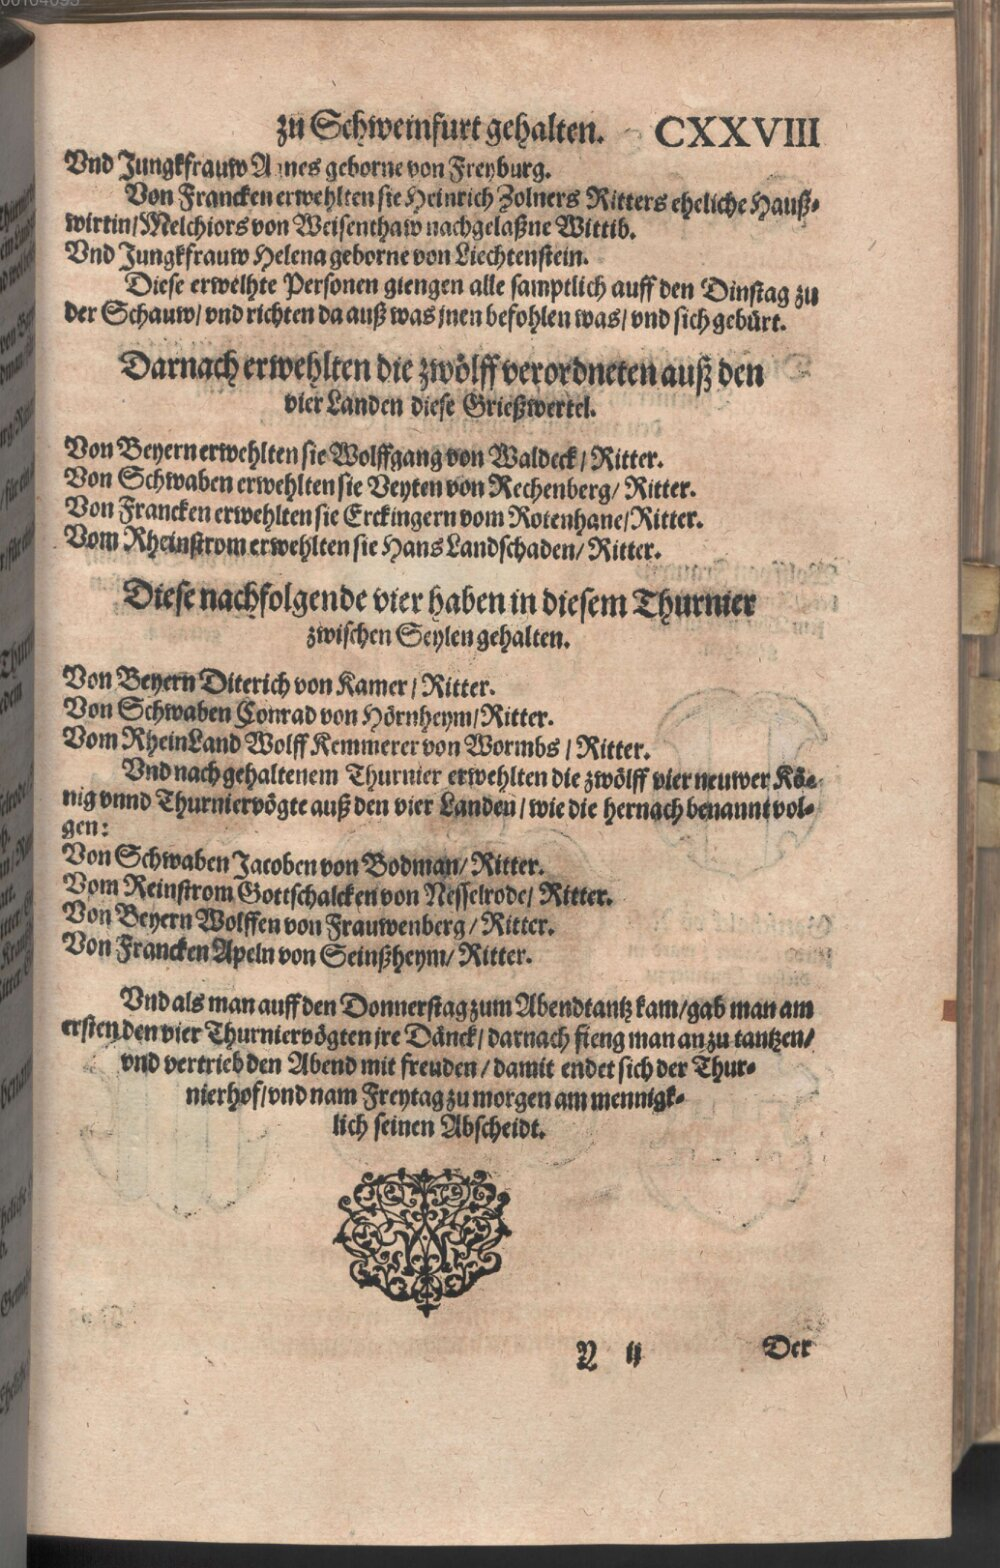 zu Schweinfurt gehalten. CXXVIII
Vnd Jungkfrauw Agnes geborne von Freyburg.
Von Francken erwehlten sie Heinrich Zolners Ritters eheliche Hauß-
wirtin/Melchiors von Weisenthaw nachgelaßne Wittib.
Vnd Jungkfrauw Helena geborne von Liechtenstein.
Diese erwelhte Personen giengen alle samptlich auff den Dinstag zu
der Schauw/ vnd richten da auß was jnen befohlen was/ vnd sich gebürt.
Darnach erwehlten die zwölff verordneten auß den
vier Landen diese Grießwertel.
Von Beyern erwehlten sie Wolffgang von Waldeck/ Ritter.
Von Schwaben erwehlten sie Veyten von Rechenberg/ Ritter.
Von Francken erwehlten sie Erckingern vom Rotenhane/Ritter.
Vom Rheinstrom erwehlten sie Hans Landschaden/ Ritter.
Diese nachfolgende vier haben in diesem Thurnier
zwischen Seylen gehalten.
Von Beyern Diterich von Kamer/ Ritter.
Von Schwaben Conrad von Hörnheym/Ritter.
Vom RheinLand Wolff Kemmerer von Wormbs/ Ritter.
Vnd nach gehaltenem Thurnier erwehlten die zwölff vier neuwer Kö-
nig vnnd Thurniervögte auß den vier Landen/ wie die hernach benannt vol-
gen:
Von Schwaben Jacoben von Bodman/ Ritter.
Vom Reinstrom Gottschalcken von Nesselrode/ Ritter.
Von Beyern Wolffen von Frauwenberg/ Ritter.
Von Francken Apeln von Seinßheym/ Ritter.
Vnd als man auff den Donnerstag zum Abendtantz kam/gab man am
ersten den vier Thurniervögten jre Dänck/ darnach fieng man an zu tantzen/
vnd vertrieb den Abend mit freuden/ damit endet sich der Thur-
nierhof/vnd nam Freytag zu morgen am mennigk-
lich seinen Abscheidt.
Y ij Der